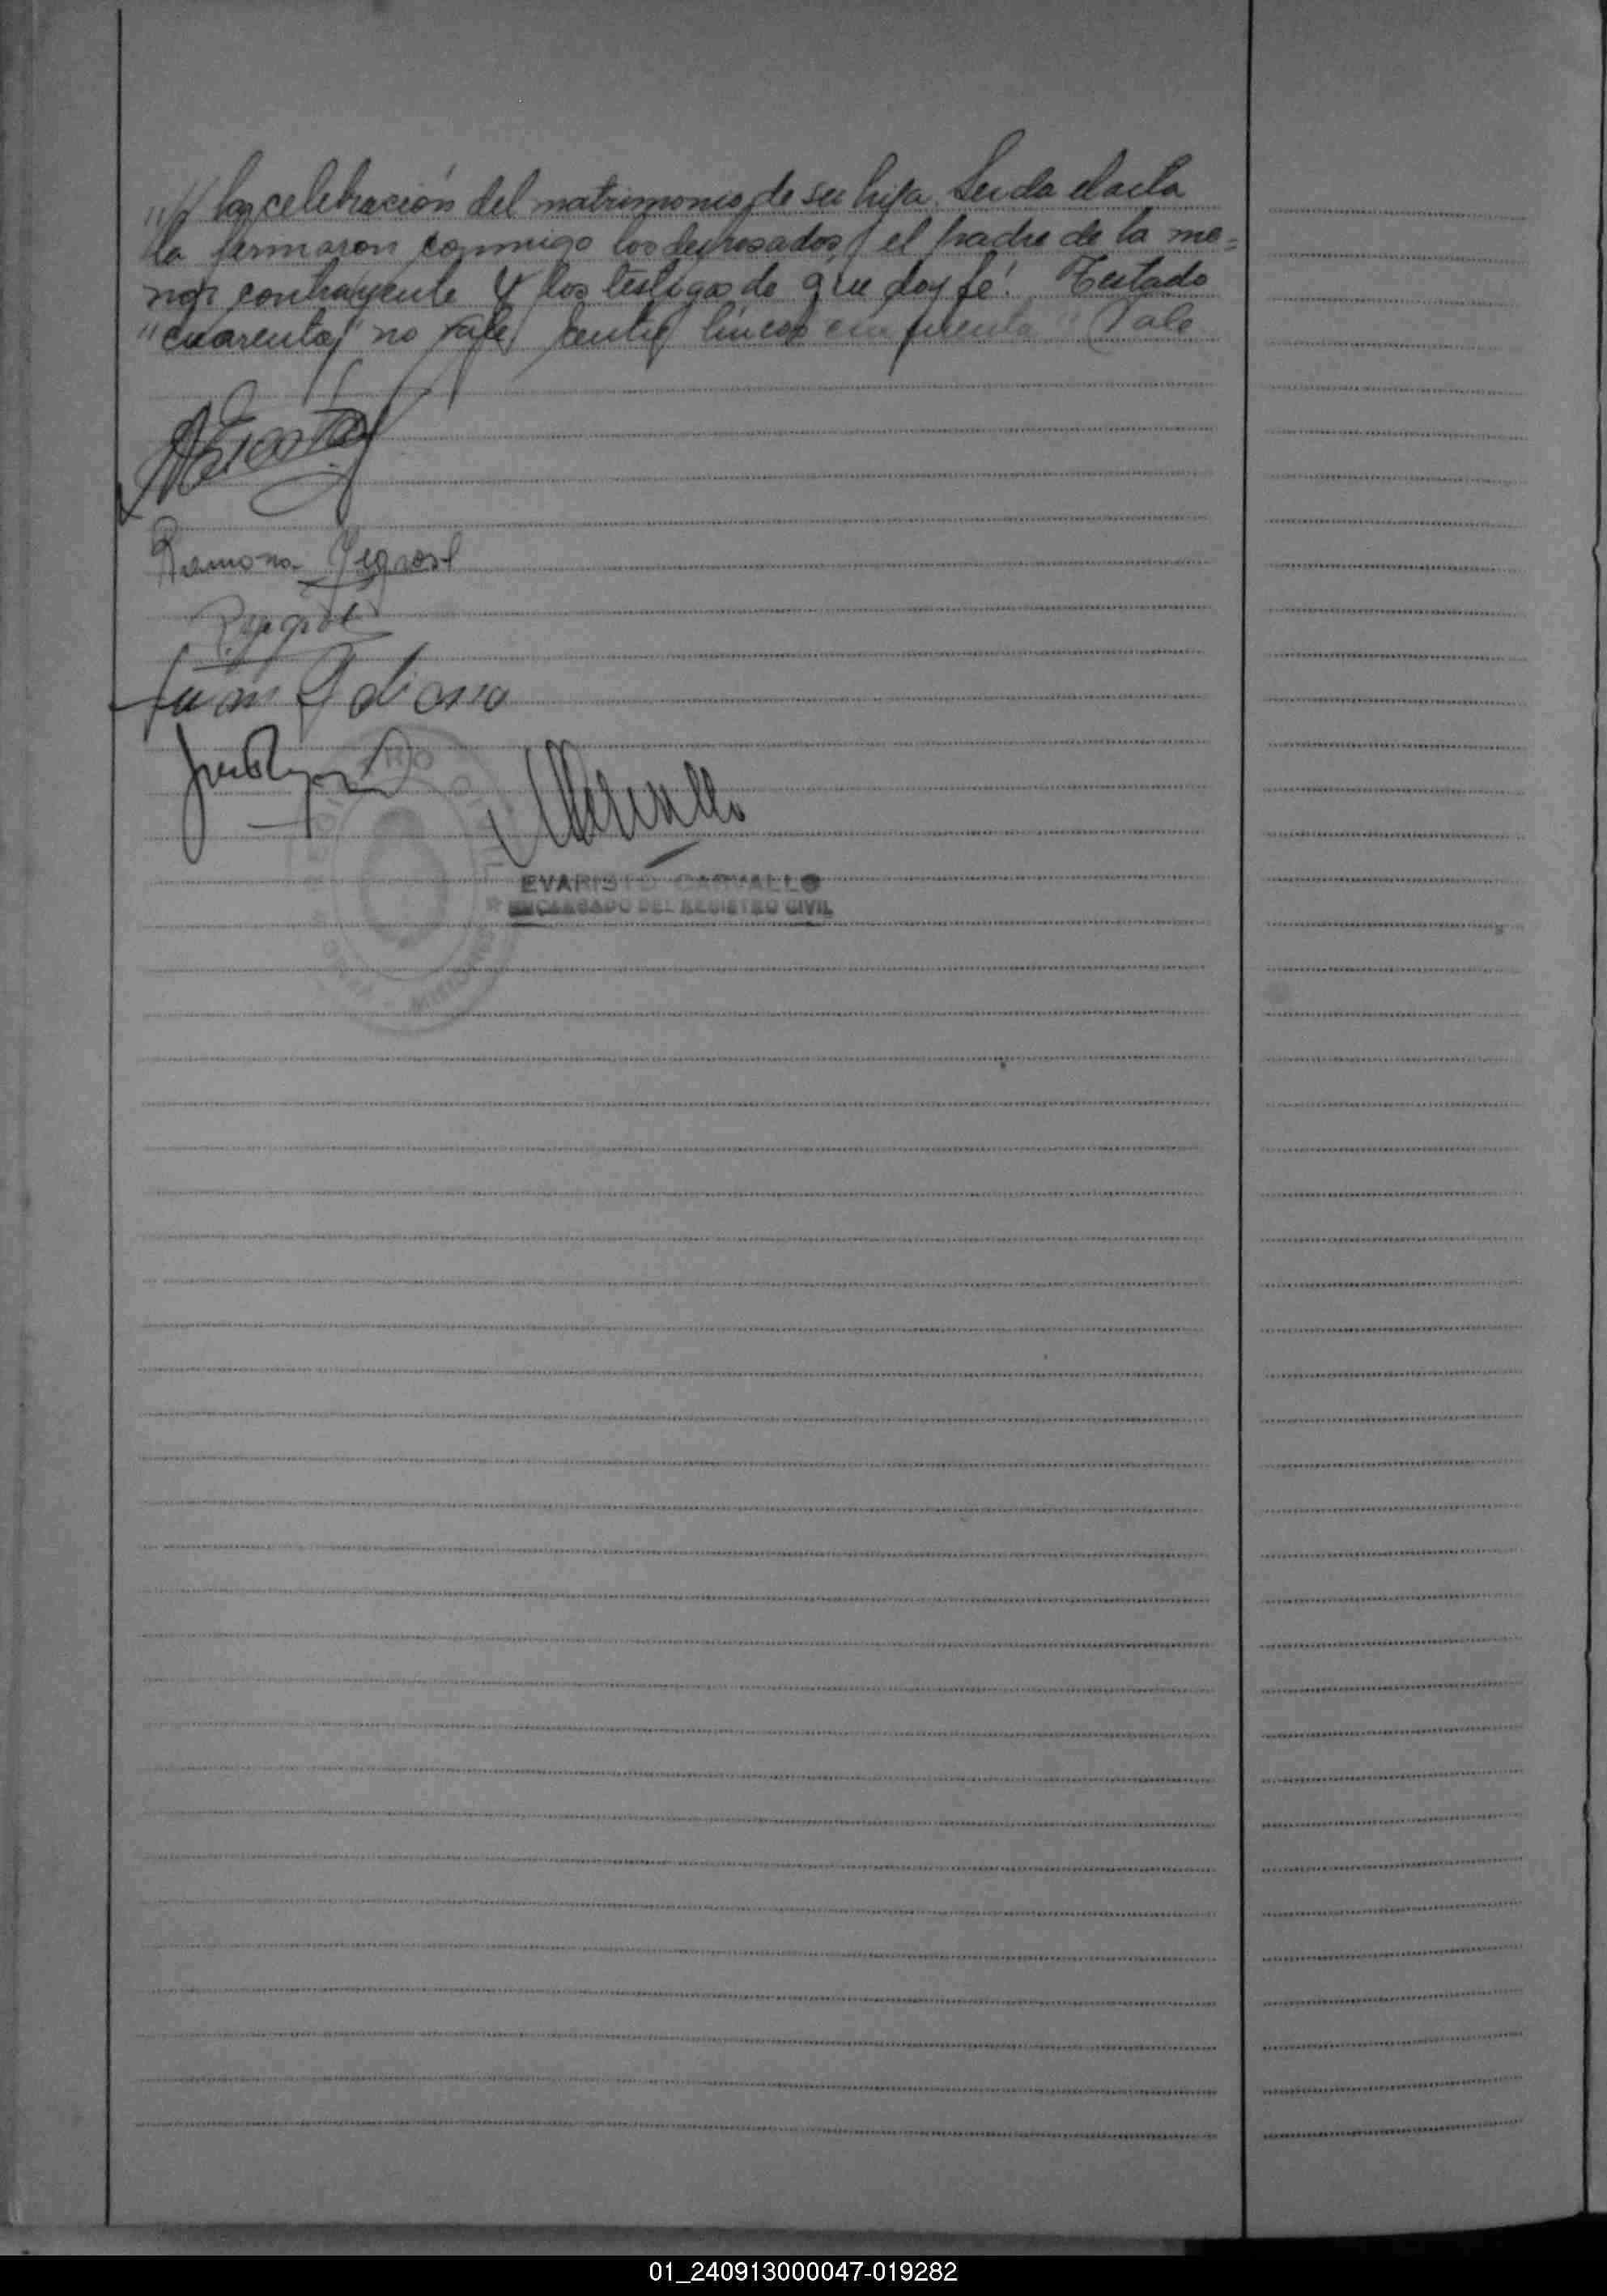 la celebración del matrimonio de su hija. Leida el acta
la firmaron conmigo los desposados, el padre de la me=
nor contrayente y los testigos de que doy fé. Testado
"cuarenta" no vale, entre lineas cincuenta" Vale
Ramona
Juan
EVARISTO CARVALLO
ENCARGADO DEL REGISTRO CIVIL
01_240913000047-019282